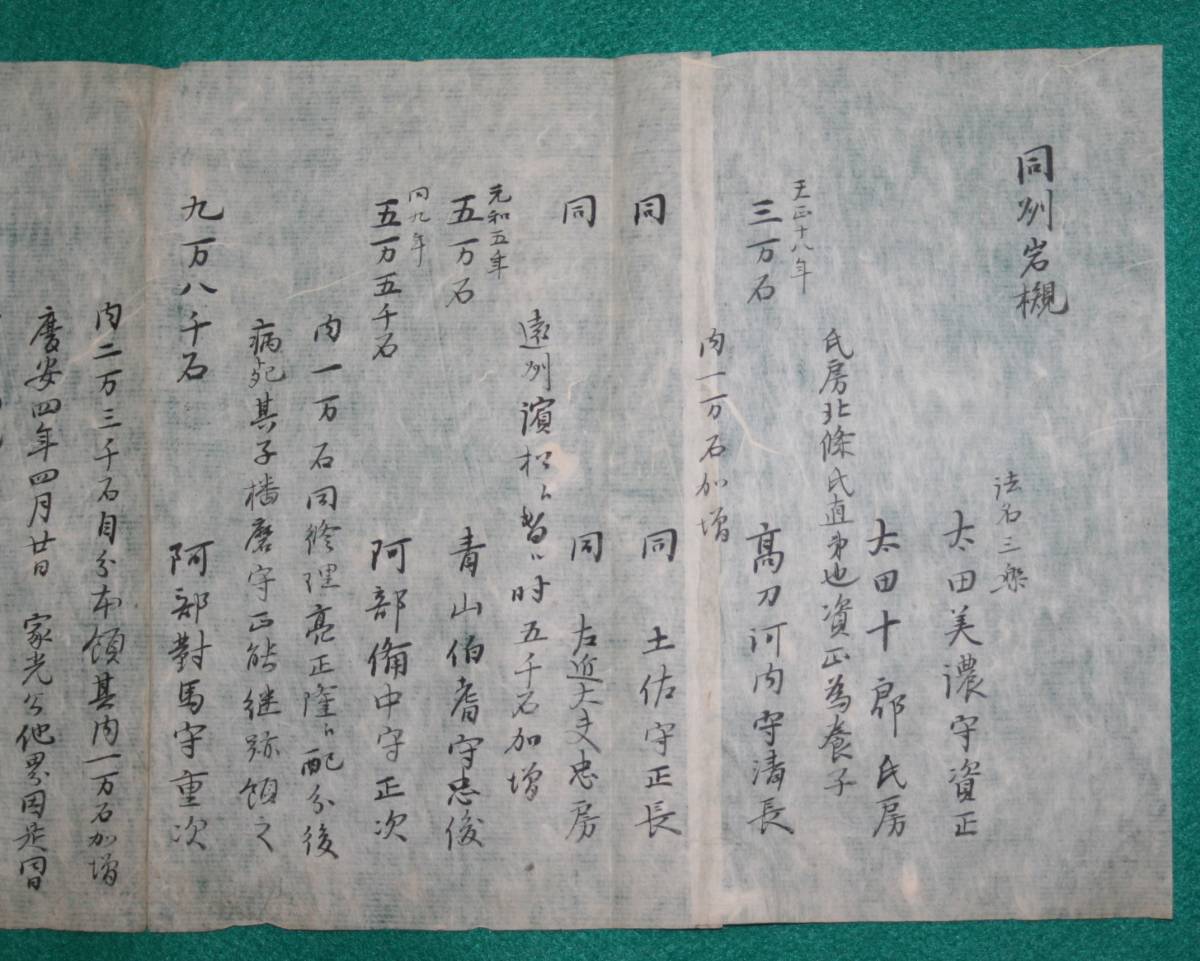 同州岩槻
法名三楽
太田美濃守資正
太田十郎氏房
氏房北條氏直弟也資正為養子
天正十八年
三万石 高力河内守清長
内一万石加増
同 同 土佐守正長
同 同 左近大夫忠房
遠州濱松ゟ替ル時五千石加増
元和五年
五万石 青山伯耆守忠俊
同九年
五万五千石 阿部備中守正次
内一万石同修理亮正隆ゟ配分後
病死其子播磨守正能継跡領之
九万八千石 阿部對馬守重次
内二万三千石自分本領其内一万石加増
慶安四年四月廿日 家光公他界因茲同日